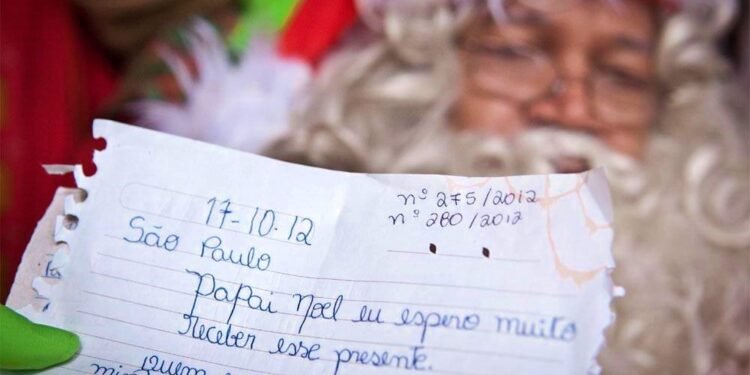 nº 275/2012
nº 280/2012
17-10.12
São Paulo
Papai Noel eu espero muito
receber esse presente.
Quem